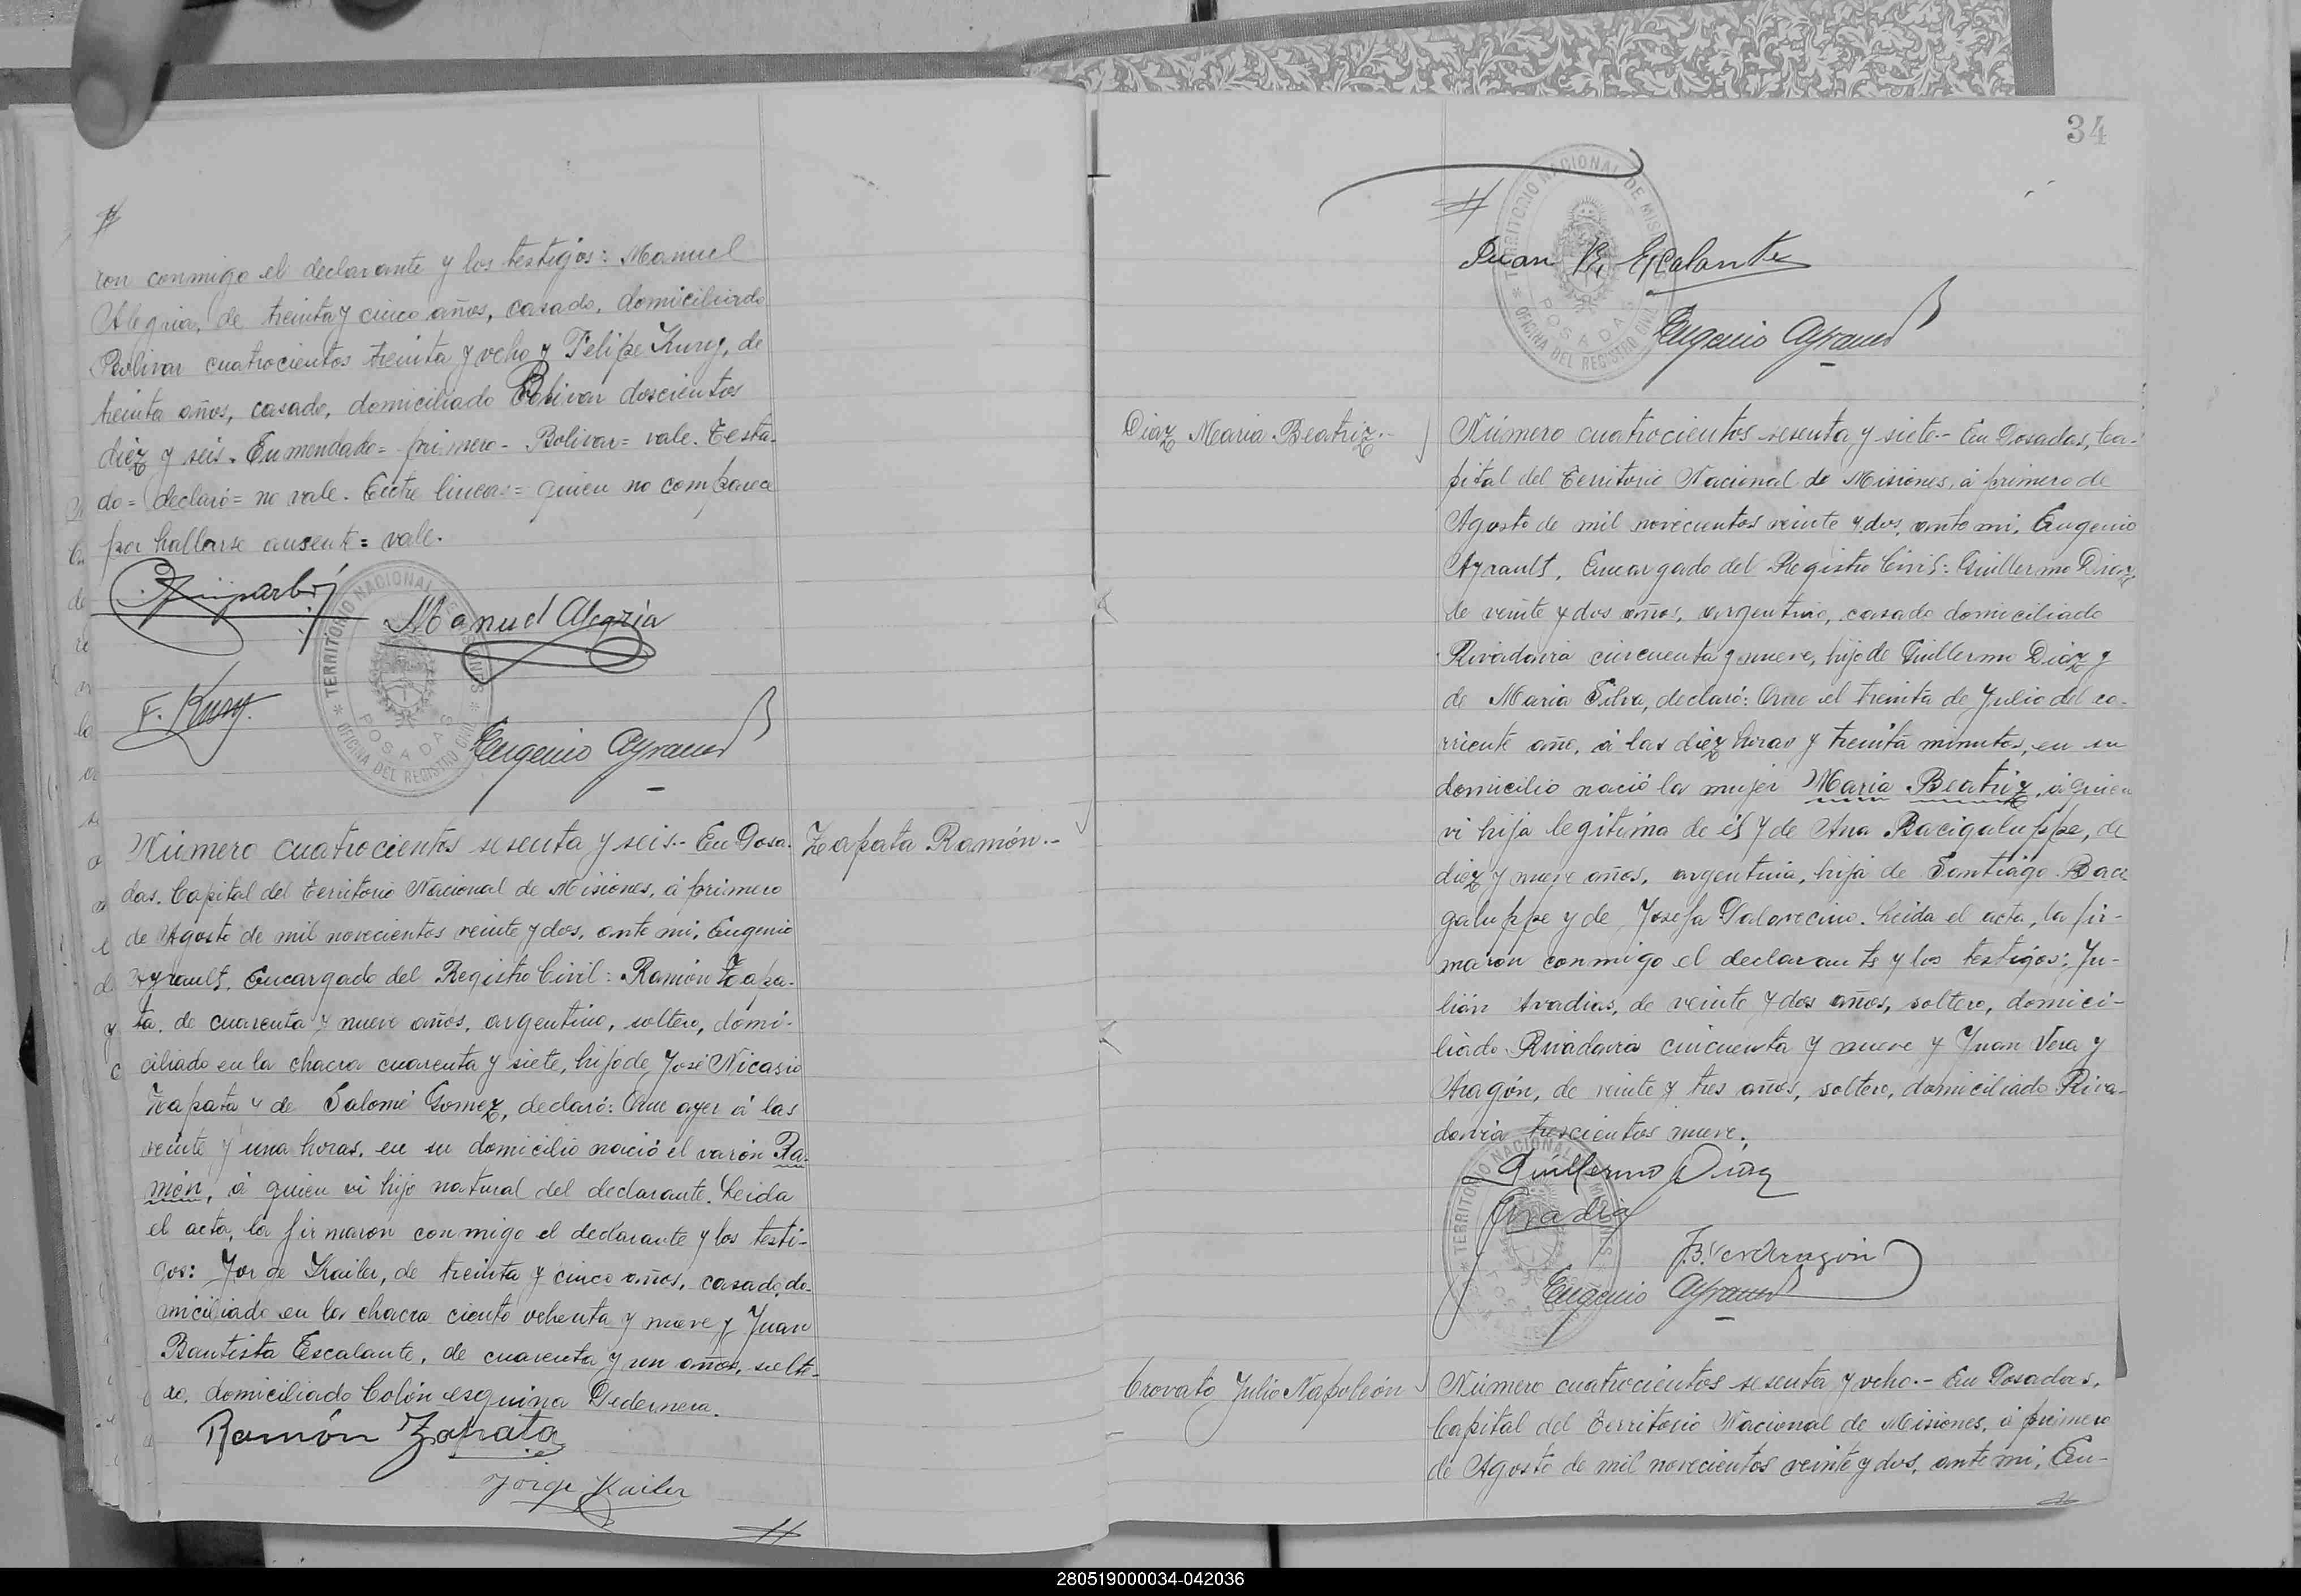 ron conmigo el declarante y los testigos: Manuel
Alegria, de treinta y cinco años, casado, domiciliado
Bolivar cuatrocientos treinta y ocho y Felipe Kury, de
treinta años, casado, domiciliado Bolivar doscientos
diez y seis. Enmendado= primero- Bolivar= vale. Testa-
do= declaró= no vale. Entre lineas= quien no comparece
por hallarse ausente= vale.
Manuel Alegría
F. Kury.
TERRITORIO NACIONAL DE MISIONES
POSADAS
OFICINA DEL REGISTRO CIVIL
Eugenio Ayrault
Número cuatrocientos sesenta y seis.- En Posa-
Zapata Ramón.-
das, Capital del Territorio Nacional de Misiones, á primero
de Agosto de mil novecientos veinte y dos, ante mi, Eugenio
Ayrault, Encargado del Registro Civil: Ramón Zapa-
ta, de cuarenta y nueve años, argentino, soltero, domi-
ciliado en la chacra cuarenta y siete, hijo de José Nicasio
Zapata y de Salomé Gomez, declaró: Que ayer á las
veinte y una horas, en su domicilio nació el varón Ra-
món, á quien vi hijo natural del declarante. Leida
el acta, la firmaron conmigo el declarante y los testi-
gos: Jorge Kailer, de treinta y cinco años, casado, do-
miciliado en la chacra ciento ochenta y nueve y Juan
Bautista Escalante, de cuarenta y un años, solte-
ro, domiciliado Colón esquina Pedernera.
Ramón Zapata
Jorge Kailer
34
TERRITORIO NACIONAL DE MISIONES
POSADAS
OFICINA DEL REGISTRO CIVIL
Juan B. Escalante
Eugenio Ayrault
Diaz Maria Beatriz.-
Número cuatrocientos sesenta y siete.- En Posadas, Ca-
pital del Territorio Nacional de Misiones, á primero de
Agosto de mil novecientos veinte y dos, ante mi, Eugenio
Ayrault, Encargado del Registro Civil: Guillermo Diaz,
de veinte y dos años, argentino, casado domiciliado
Rivadavia cincuenta y nueve, hijo de Guillermo Diaz y
de Maria Silva, declaró: Que el treinta de Julio del co-
rriente año, á las diez horas y treinta minutos, en su
domicilio nació la mujer Maria Beatriz, á quien
vi hija legitima de él y de Ana Bacigaluppe, de
diez y nueve años, argentina, hija de Santiago Baci
galuppe y de Josefa Palavecino. Leida el acta, la fir-
maron conmigo el declarante y los testigos: Ju-
lián Avadias, de veinte y dos años, soltero, domici-
liado Rivadavia cincuenta y nueve y Juan Vera y
Aragón, de veinte y tres años, soltero, domiciliado Riva-
davia trescientos nueve.
Guillermo Diaz
J. B. Vera Aragón
Eugenio Ayrault
Crovato Julio Napoleón
Número cuatrocientos sesenta y ocho.- En Posadas,
Capital del Territorio Nacional de Misiones, á primero
de Agosto de mil novecientos veinte y dos, ante mi, Eu-
280519000034-042036